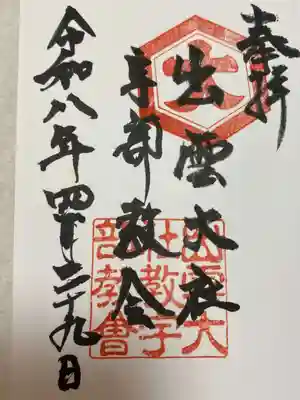 奉拝
大
出雲大社
宇部教会
出雲大
社教宇
部教會
令和八年四月二十九日